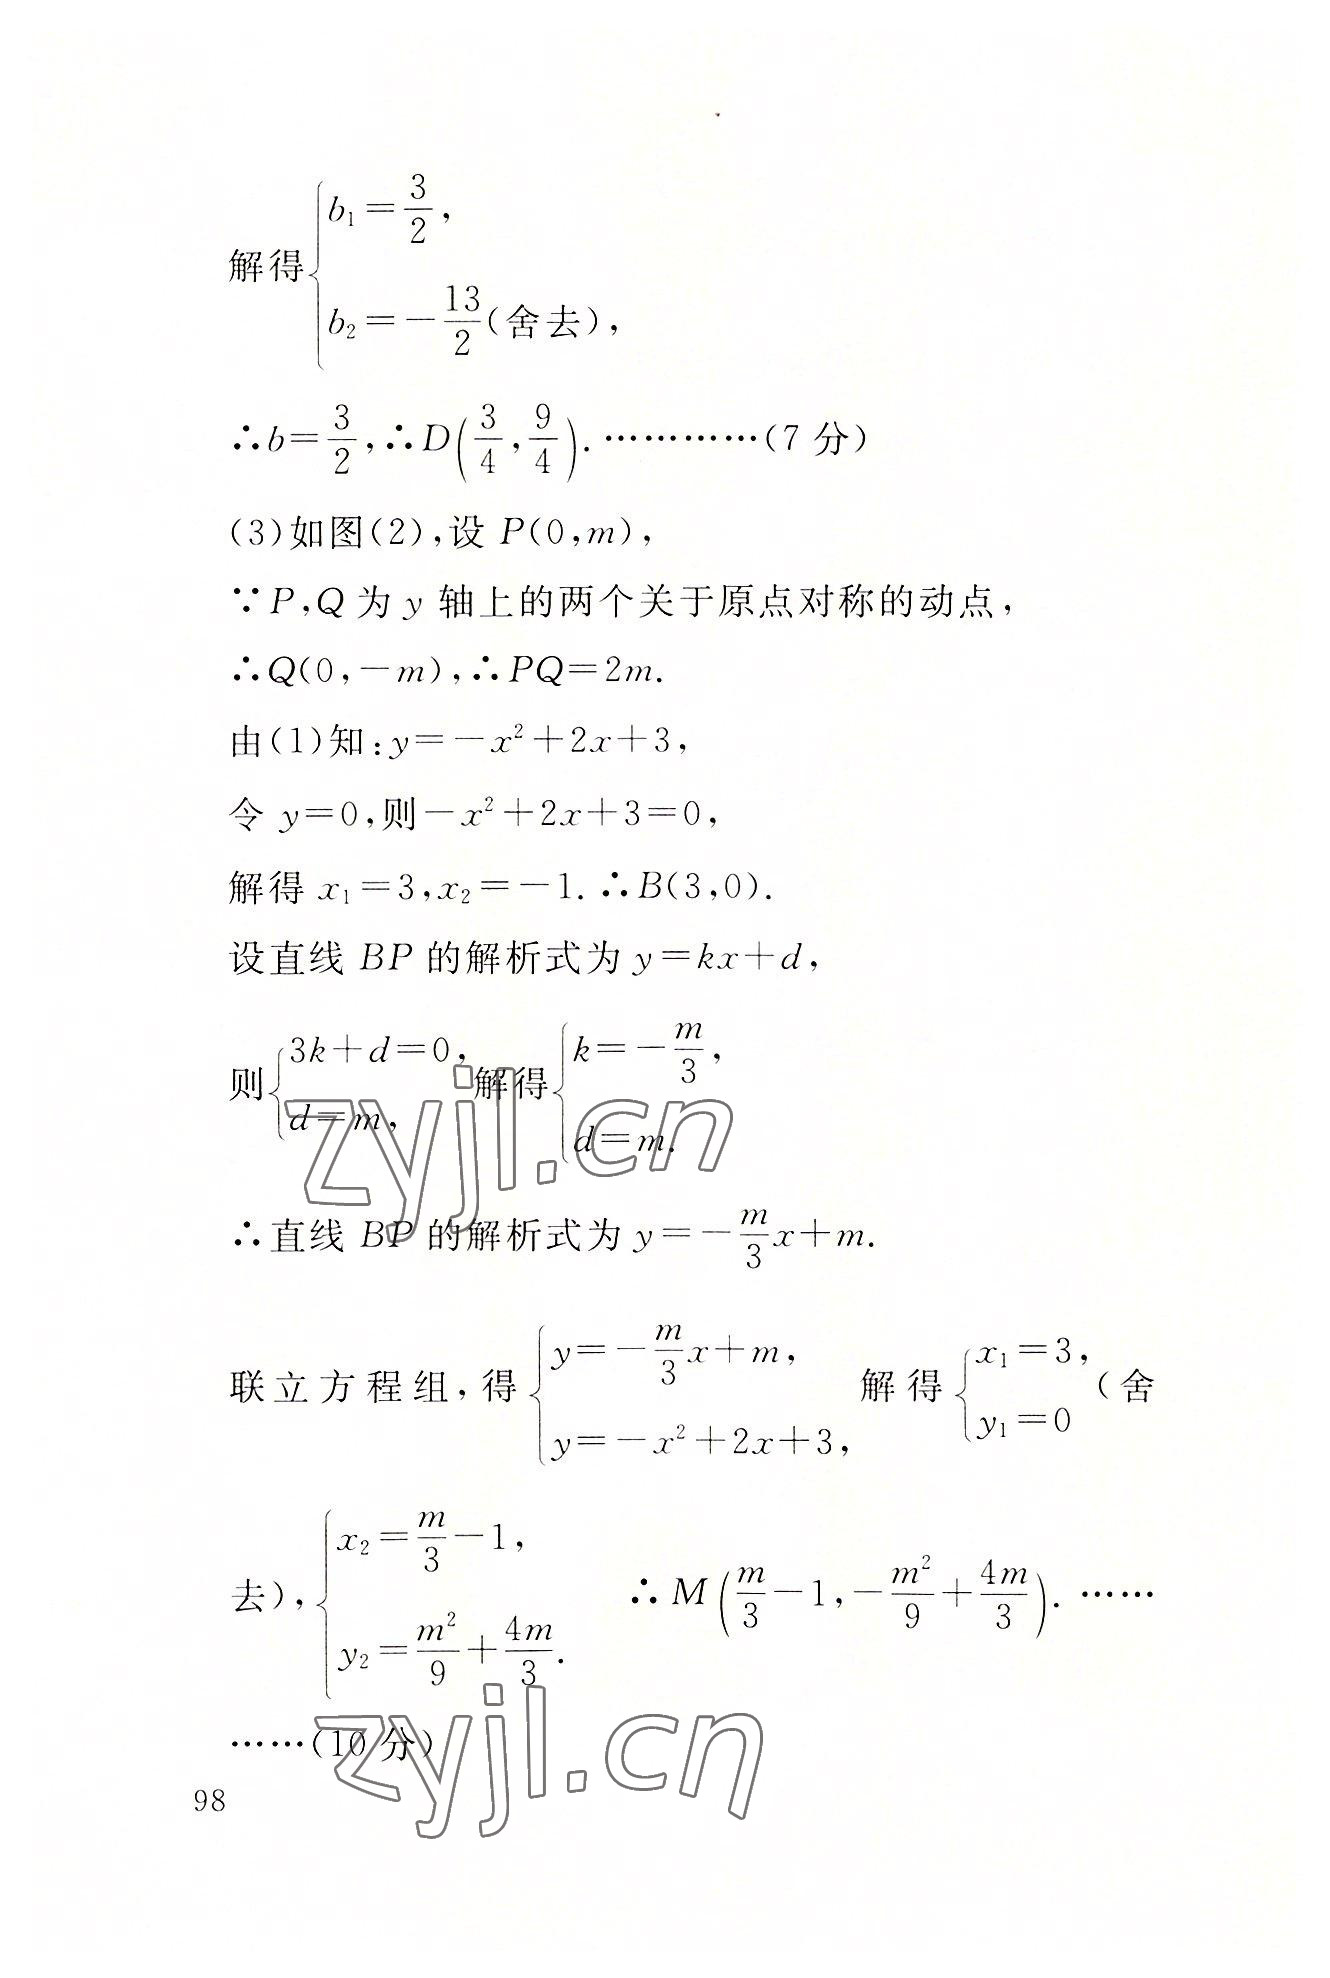 解得{b₁=3/2,
b₂=-13/2(舍去),
∴b=3/2,∴D(3/4,9/4).…………(7分)
(3)如图(2),设P(0,m),
∵P,Q为y轴上的两个关于原点对称的动点,
∴Q(0,-m),∴PQ=2m.
由(1)知:y=-x²+2x+3,
令y=0,则-x²+2x+3=0,
解得x₁=3,x₂=-1.∴B(3,0).
设直线BP的解析式为y=kx+d,
则{3k+d=0, d=m, 解得{k=-m/3, d=m.
∴直线BP的解析式为y=-m/3x+m.
联立方程组,得{y=-m/3x+m, y=-x²+2x+3, 解得{x₁=3, y₁=0 (舍
去),{x₂=m/3-1, y₂=m²/9+4m/3. ∴M(m/3-1,-m²/9+4m/3).……
……(10分)
98
zyjl.cn
zyjl.cn